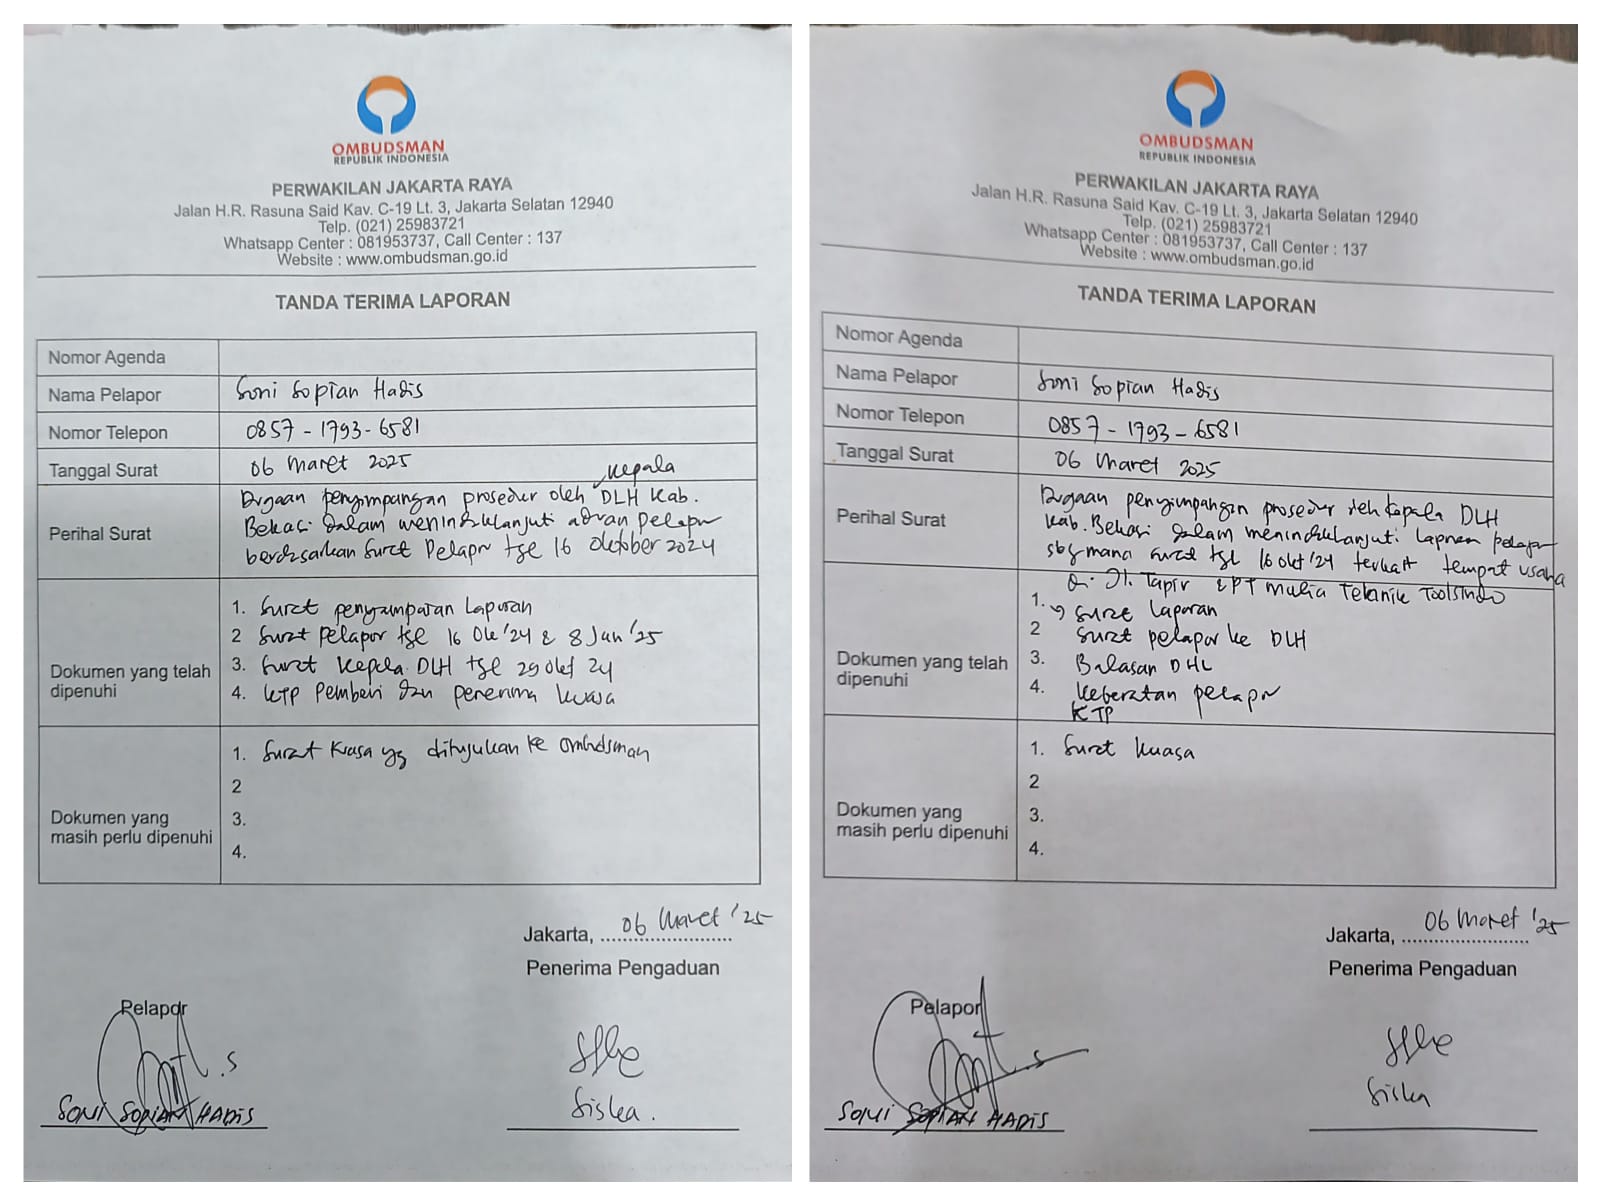 OMBUDSMAN
REPUBLIK INDONESIA
PERWAKILAN JAKARTA RAYA
Jalan H.R. Rasuna Said Kav. C-19 Lt. 3, Jakarta Selatan 12940
Telp. (021) 25983721
Whatsapp Center : 081953737, Call Center : 137
Website : www.ombudsman.go.id
TANDA TERIMA LAPORAN
Nomor Agenda
Nama Pelapor Soni Sopian Hadis
Nomor Telepon 0857-1793-6581
Tanggal Surat 06 Maret 2025
Perihal Surat
Dugaan penyimpangan prosedur oleh Kepala DLH Kab.
Bekasi dalam menindaklanjuti aduan pelapor
berdasarkan Surat Pelapor tgl 16 Oktober 2024
Dokumen yang telah dipenuhi
1. Surat penyampaian Laporan
2 Surat pelapor tgl 16 Okt '24 & 8 Jan '25
3. Surat Kepala DLH tgl 29 Okt 24
4. KTP Pemberi dan penerima kuasa
Dokumen yang masih perlu dipenuhi
1. Surat Kuasa yg ditujukan ke Ombudsman
2
3.
4.
Jakarta, 06 Maret '25
Penerima Pengaduan
Pelapor
SONI SOPIAN HADIS
Siska.
OMBUDSMAN
REPUBLIK INDONESIA
PERWAKILAN JAKARTA RAYA
Jalan H.R. Rasuna Said Kav. C-19 Lt. 3, Jakarta Selatan 12940
Telp. (021) 25983721
Whatsapp Center : 081953737, Call Center : 137
Website : www.ombudsman.go.id
TANDA TERIMA LAPORAN
Nomor Agenda
Nama Pelapor Soni Sopian Hadis
Nomor Telepon 0857-1793-6581
Tanggal Surat 06 Maret 2025
Perihal Surat
Dugaan penyimpangan prosedur oleh Kepala DLH
Kab. Bekasi dalam menindaklanjuti laporan pelapor
sbgmana surat tgl 16 okt '24 terkait tempat usaha
di Jl. Tapir & PT Mulia Teknik Toolsindo
Dokumen yang telah dipenuhi
1. Surat laporan
2 Surat pelapor ke DLH
3. Balasan DHL
4. Keberatan pelapor
KTP
Dokumen yang masih perlu dipenuhi
1. Surat kuasa
2
3.
4.
Jakarta, 06 Maret '25
Penerima Pengaduan
Pelapor
SONI SOPIAN HADIS
Siska